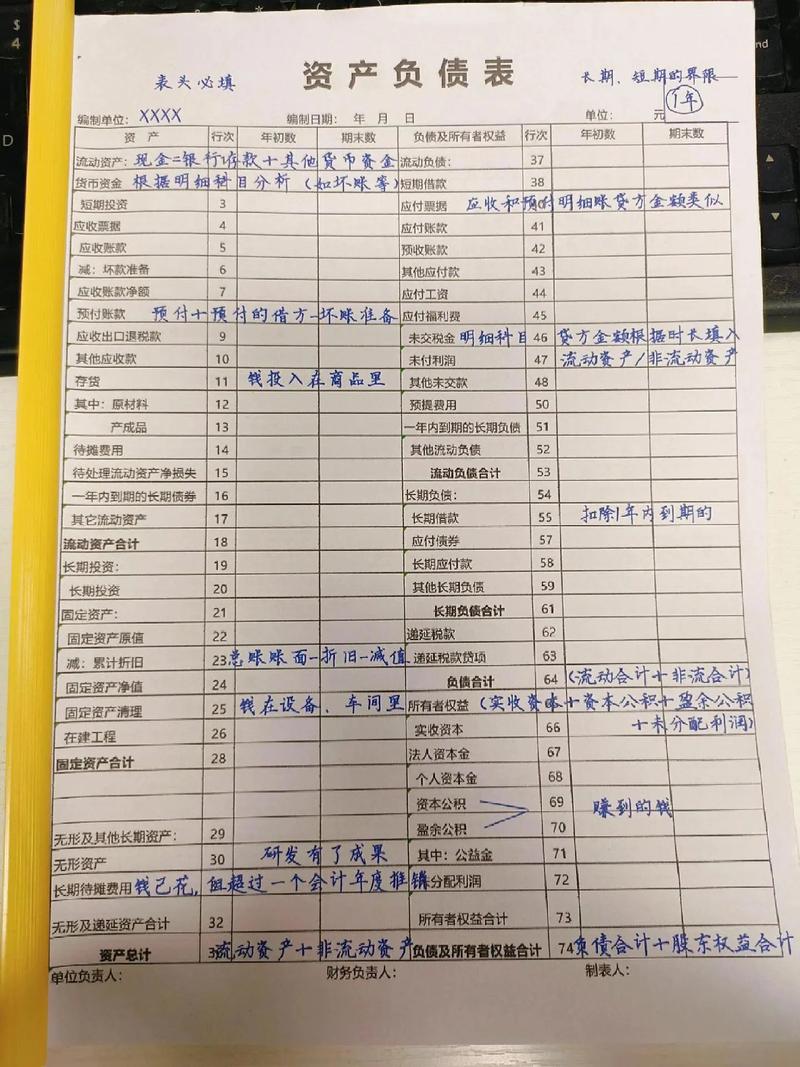 资产负债表
表头必填
长期、短期的界限
1年
编制单位： XXXX 编制日期： 年 月 日 单位： 元
资 产 行次 年初数 期末数 负债及所有者权益 行次 年初数 期末数
流动资产： 现金=银行存款+其他货币资金 流动负债： 37
货币资金 根据明细科目分析（如坏账等） 短期借款 38
短期投资 3 应付票据 应收和预付明细账贷方金额类似
应收票据 4 应付账款 41
应收账款 5 预收账款 42
减：坏款准备 6 其他应付款 43
应收账款净额 7 应付工资 44
预付账款 预付+预付的借方-坏账准备 应付福利费 45
应收出口退税款 9 未交税金 明细科目 46 贷方金额根据时长填入
其他应收款 10 未付利润 47 流动资产/非流动资产
存货 11 钱投入在商品里 其他未交款 48
其中：原材料 12 预提费用 50
产成品 13 一年内到期的长期负债 51
待摊费用 14 其他流动负债 52
待处理流动资产净损失 15 流动负债合计 53
一年内到期的长期债券 16 长期负债： 54
其它流动资产 17 长期借款 55 扣除1年内到期的
流动资产合计 18 应付债券 57
长期投资： 19 长期应付款 58
长期投资 20 其他长期负债 59
固定资产： 21 长期负债合计 61
固定资产原值 22 递延税款 62
减：累计折旧 23 总账账面-折旧-减值 递延税款贷项 63
固定资产净值 24 负债合计 64 (流动合计+非流合计)
固定资产清理 25 钱在设备、车间里 所有者权益 (实收资本+资本公积+盈余公积
在建工程 26 实收资本 66 +未分配利润)
固定资产合计 28 法人资本金 67
个人资本金 68
资本公积 69 赚到的钱
无形及其他长期资产： 29 盈余公积 70
无形资产 30 研发有了成果 其中：公益金 71
长期待摊费用 钱已花，但超过一个会计年度摊销 未分配利润 72
无形及递延资产合计 32 所有者权益合计 73
资产总计 流动资产+非流动资产 负债及所有者权益合计 74 负债合计+股东权益合计
单位负责人： 财务负责人： 制表人：